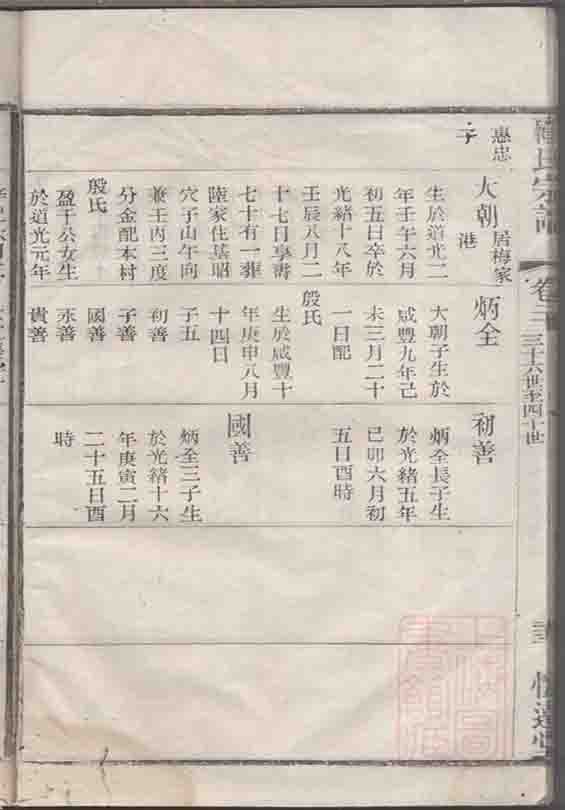 氏宗譜
卷二
三十六世至四十世
惠忠
子
大朝 居梅家
港
生於道光二
年壬午六月
初五日卒於
光緒十八年
壬辰八月二
十七日享壽
七十有一葬
陸家住基昭
穴子山午向
兼壬丙三度
分金配本村
殷氏
盈干公女生
於道光元年
炳全
大朝子生於
咸豐九年己
未三月二十
一日配
殷氏
生於咸豐十
年庚申八月
十四日
子五
初善
子善
國善
永善
貴善
初善
炳全長子生
於光緒五年
己卯六月初
五日酉時
國善
炳全三子生
於光緒十六
年庚寅二月
二十五日酉
時
上海圖
書館藏